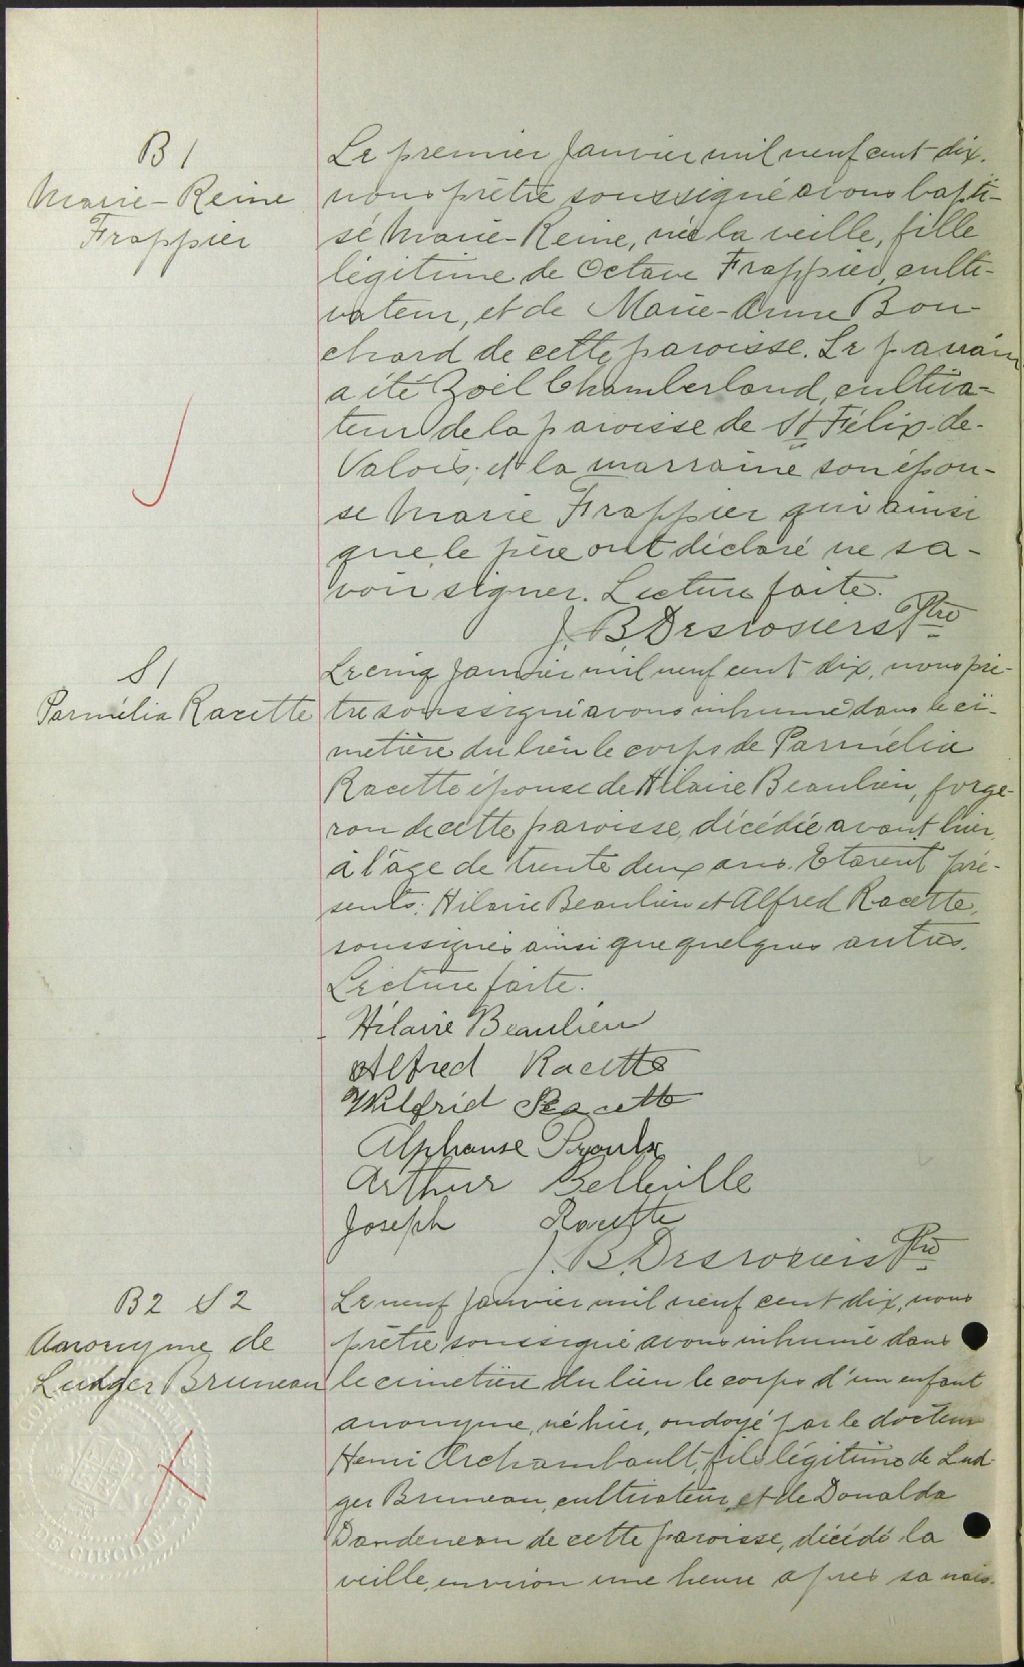 B 1
Marie-Reine
Frappier
Le premier janvier mil neuf cent dix.
nous prêtre soussigné avons bapti-
sé Marie-Reine, née la veille, fille
légitime de Octave Frappier, culti-
vateur, et de Marie-Anne Bou-
chard de cette paroisse. Le parrain
a été Zoël Chamberland, cultiva-
teur de la paroisse de St Félix-de-
Valois; et la marraine son épou-
se Marie Frappier qui ainsi
que le père ont déclaré ne sa-
voir signer. Lecture faite.
J. B. Desrosiers Ptre
S 1
Parmélia Racette
Le cinq janvier mil neuf cent dix, nous prê-
tre soussigné avons inhumé dans le ci-
metière du lieu le corps de Parmélia
Racette épouse de Hilaire Beaulieu, forge-
ron de cette paroisse, décédée avant hier,
à l'âge de trente deux ans. Etaient pré-
sents: Hilaire Beaulieu et Alfred Racette,
soussignés ainsi que quelques autres.
Lecture faite.
Hilaire Beaulieu
Alfred Racette
Wilfrid Racette
Alphonse Proulx
Arthur Belleville
Joseph Racette
J. B. Desrosiers Ptre
B2 S2
Anonyme de
Ludger Bruneau
Le neuf janvier mil neuf cent dix, nous
prêtre soussigné avons inhumé dans
le cimetière du lieu le corps d'un enfant
anonyme, né hier, ondoyé par le docteur
Henri Archambault, fils légitime de Lud-
ger Bruneau, cultivateur, et de Donalda
Dandeneau de cette paroisse, décédé la
veille, environ une heure après sa nais-